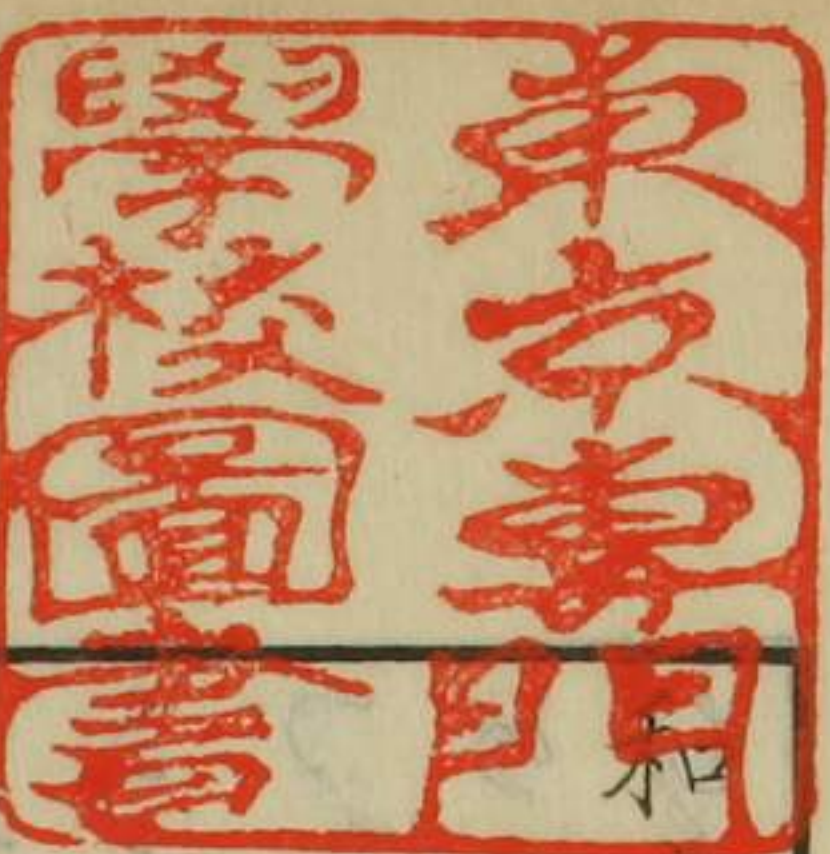 東京專門
學校圖書
和